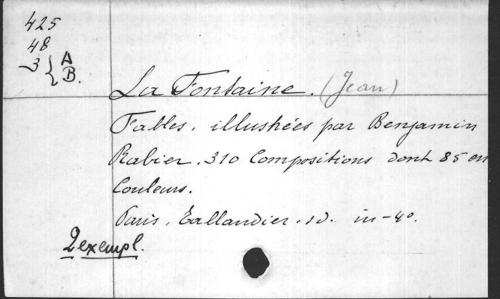 425
48
3 { A
B.
La Fontaine. (Jean)
Fables. illustrées par Benjamin
Rabier. 310 Compositions dont 85 en
Couleurs.
Paris. Tallandier. s.d. in-4o.
2 exempl.